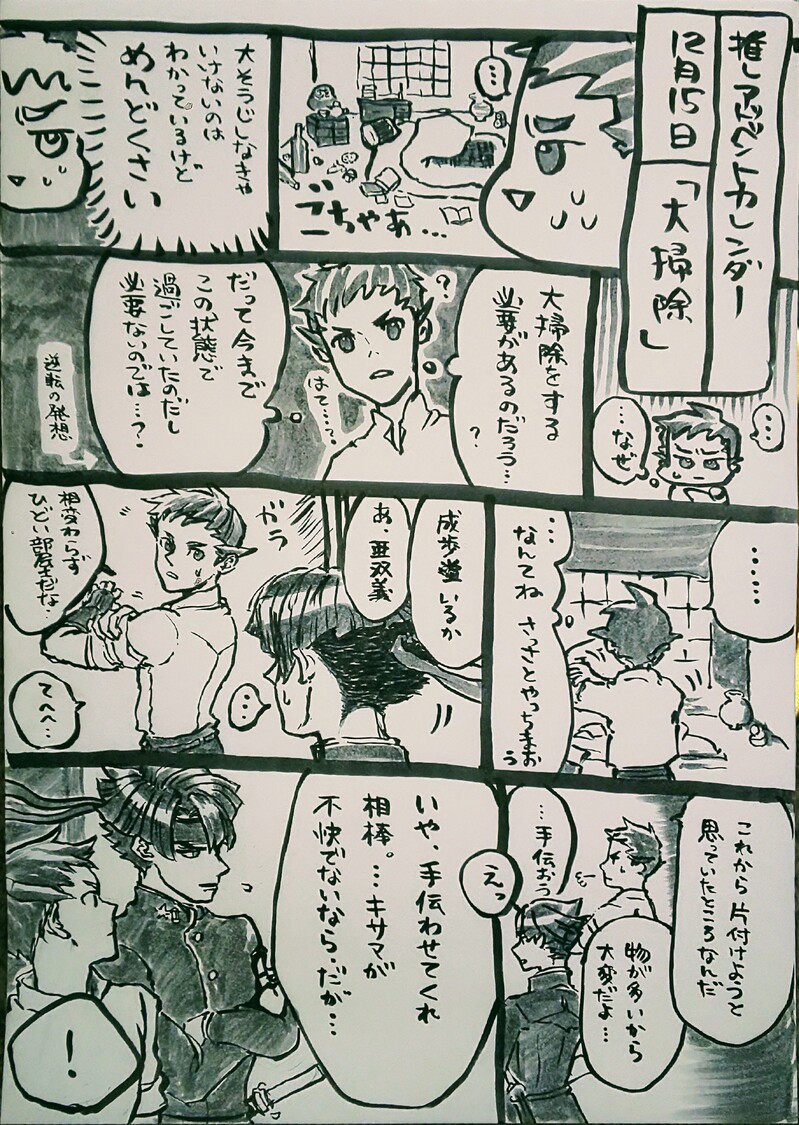 推しアドベントカレンダー
12月15日
「大掃除」
…
ごちゃあ…
大そうじしなきゃ
いけないのは
わかっているけど
めんどくさい
…
…なぜ
大掃除をする
必要があるのだろう…
?
?
はて…?
だって今まで
この状態で
過ごしていたのだし
必要ないのでは…?
逆転の発想
……
…なんてね さっさとやっちまおう
成歩堂いるか
あ、亜双義
ガラ
…
相変わらず
ひどい部屋だな…
てへへ…
これから片付けようと
思っていたところなんだ
物が多いから
大変だよ…
…手伝おう
えっ
いや、手伝わせてくれ
相棒。…キサマが
不快でないなら、だが…
!